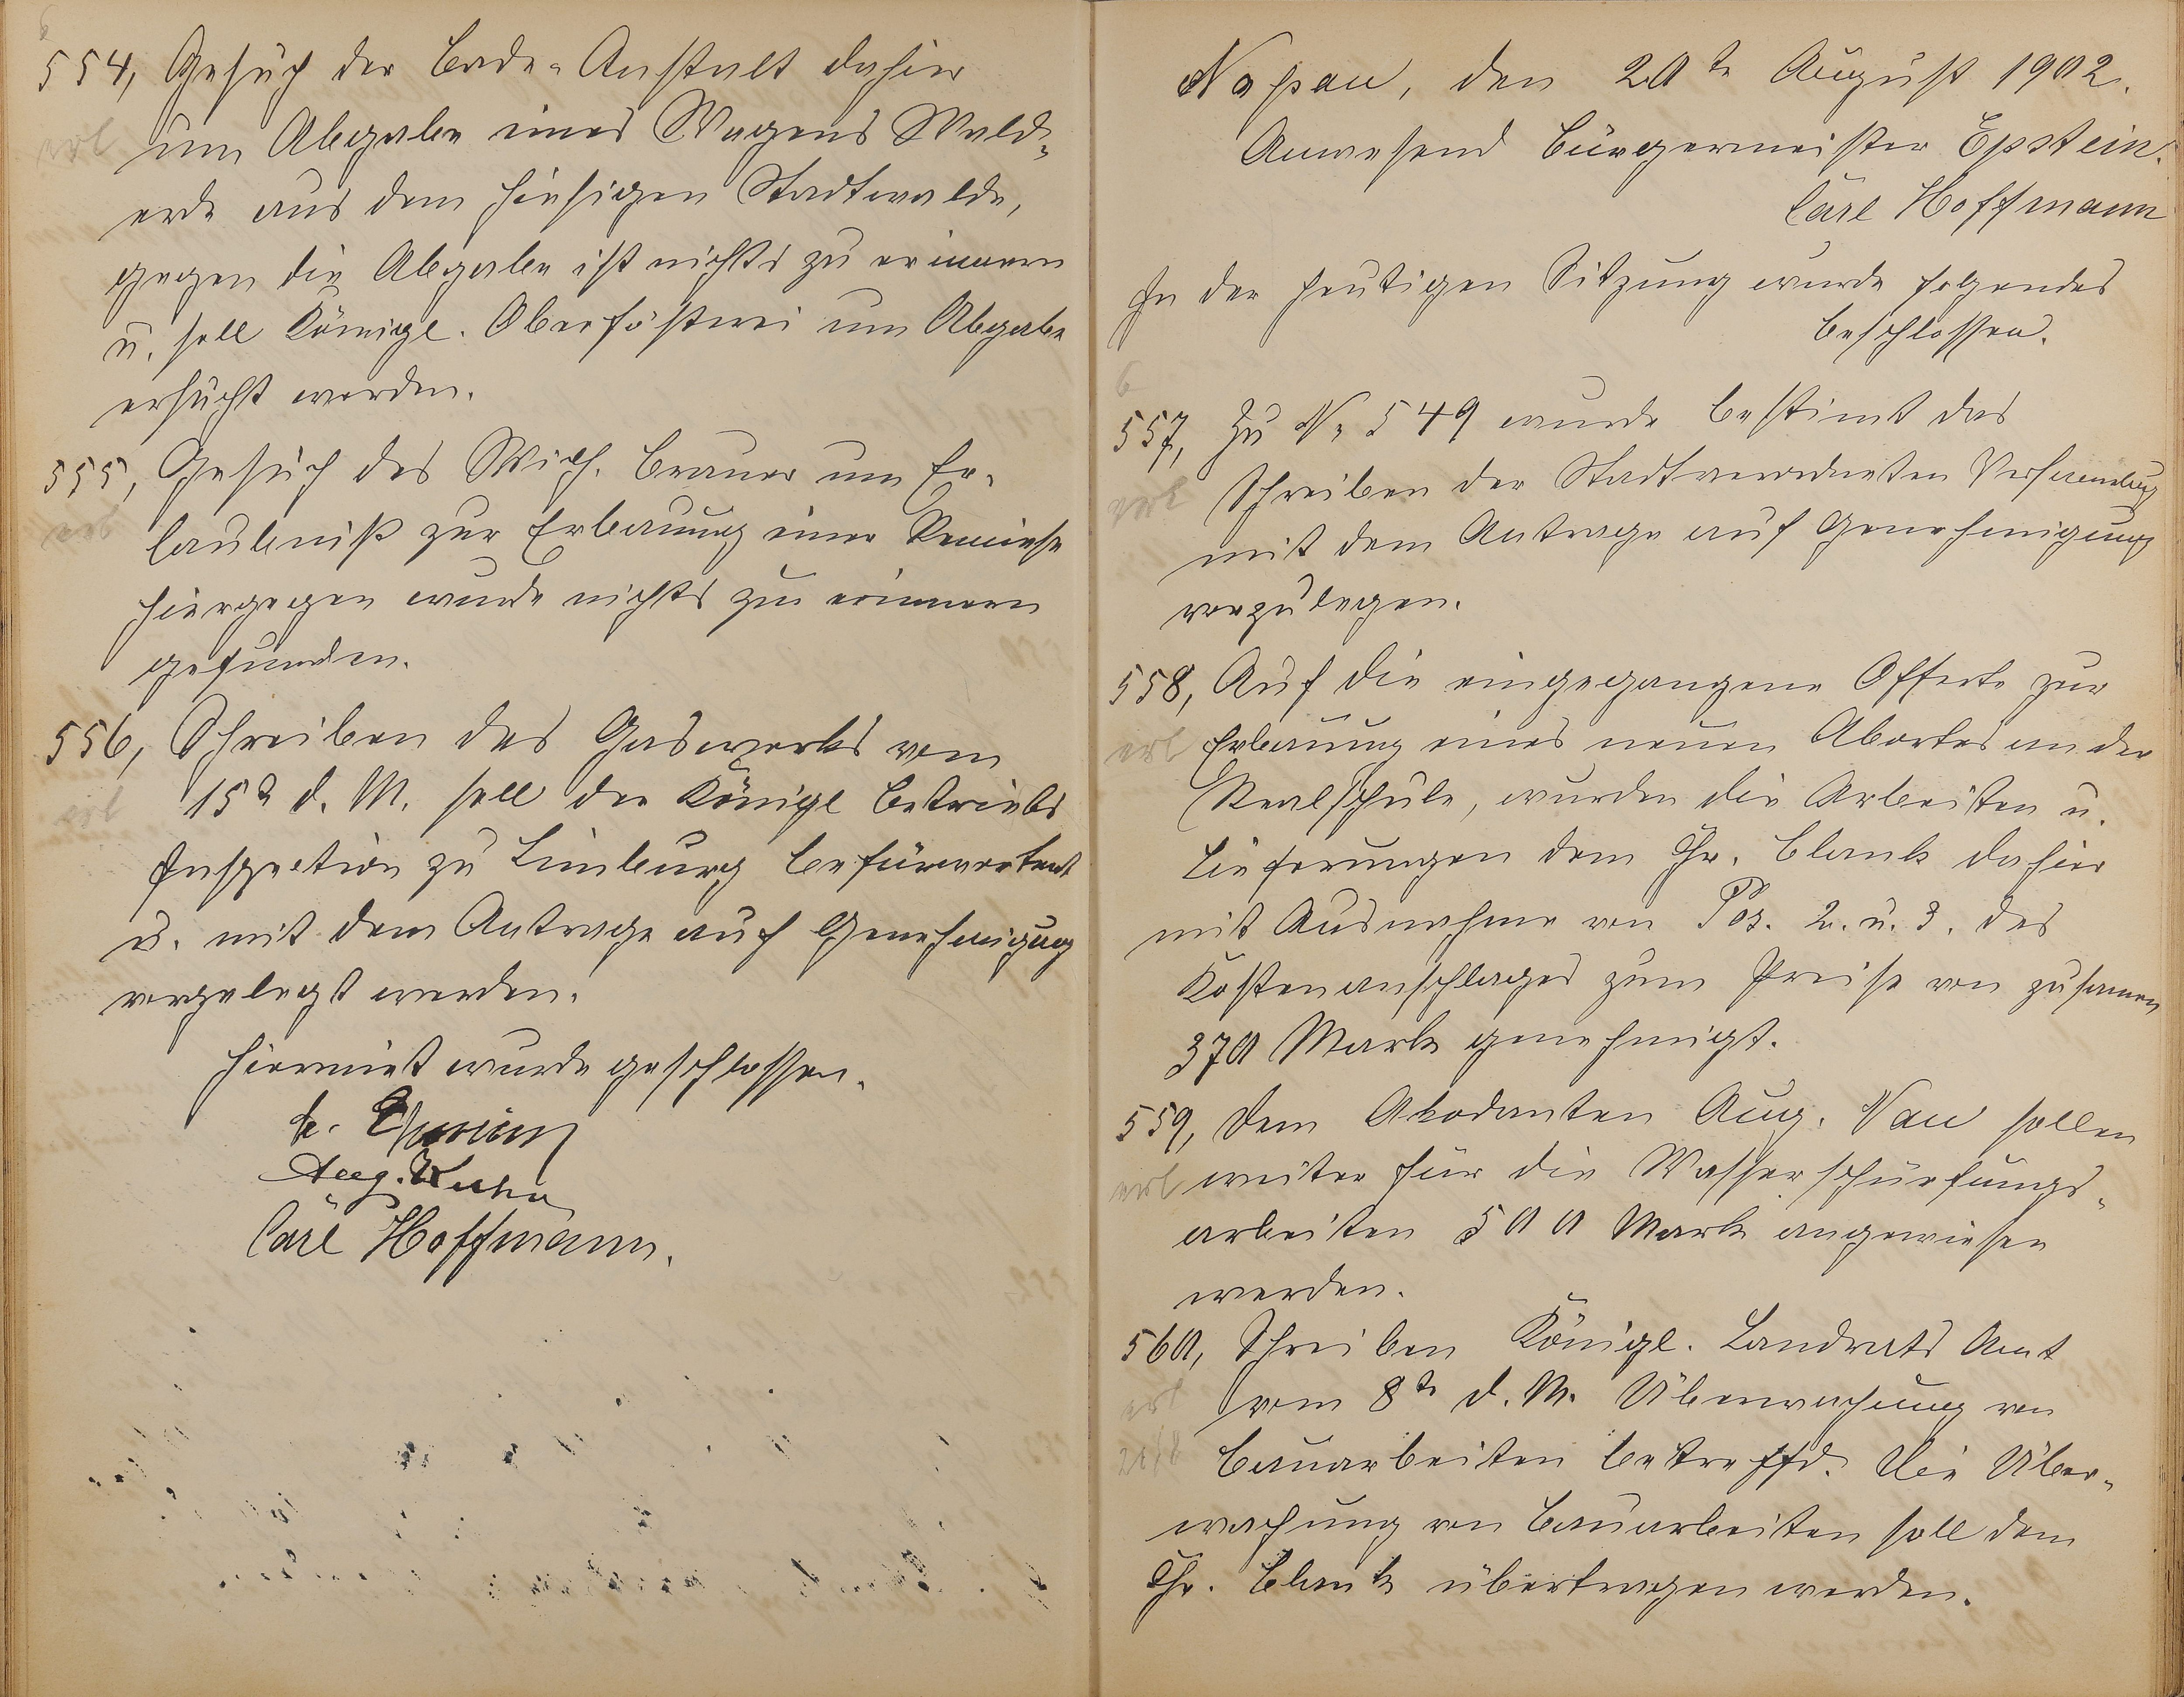 554, Gesuch der Bade-Anstalt dahier
erl
um Abgabe eines Wagens Wald-
erde aus dem hiesigen Stadtwalde,
gegen die Abgabe ist nichts zu erinnern
u. soll Königl. Oberfösterei um Abgabe
ersucht werden.
555, Gesuch des Wilh. Brauer um Er-
erl
laubniß zur Erbauung einer Remiese
hiergegen wurde nichts zu erinnern
gefunden.
556, Schreiben des Gaswerks vom
erl
15 d. M. soll der Königl Betriebs
Inspection zu Limburg befürwortent
u. mit dem Antrage auf Genehmigung
vorgelegt werden.
Hiermiet wurde geschlossen.
Aug. Kuhn
Carl Hoffmann.
Nassau, den 20te August 1902.
Anwesend Bürgermeister Epstein.
Carl Hoffmann
In der heutigen Sitzung wurde folgendes
beschlossen.
557, Zu No 549 wurde bestimt das
erl
Schreiben der Stadtverordneten Versamlung
mit dem Antrage auf Genehmigung
vorzulegen.
558, Auf die eingegangene Offerte zur
erl
Erbauung eines neuen Abortes an der
Realschule, wurden die Arbeiten u.
Lieferungen dem Chr. Blank dahier
mit Ausnahme von Pos. 2. u. 3. des
Kostenanschlages zum Preise von zusamen
370 Mark genehmigt.
559, Dem Akodanten Aug. Nau sollen
erl
weiter für die Wasserschürfungs-
arbeiten 500 Mark angewiesen
werden.
560, Schreiben Königl. Landrats Amt
erl
vom 8te d. M. Überwachung von
Bauarbeiten betreffd. Die Über-
wachung von Bauarbeiten soll dem
Chr. Blank übertragen werden.